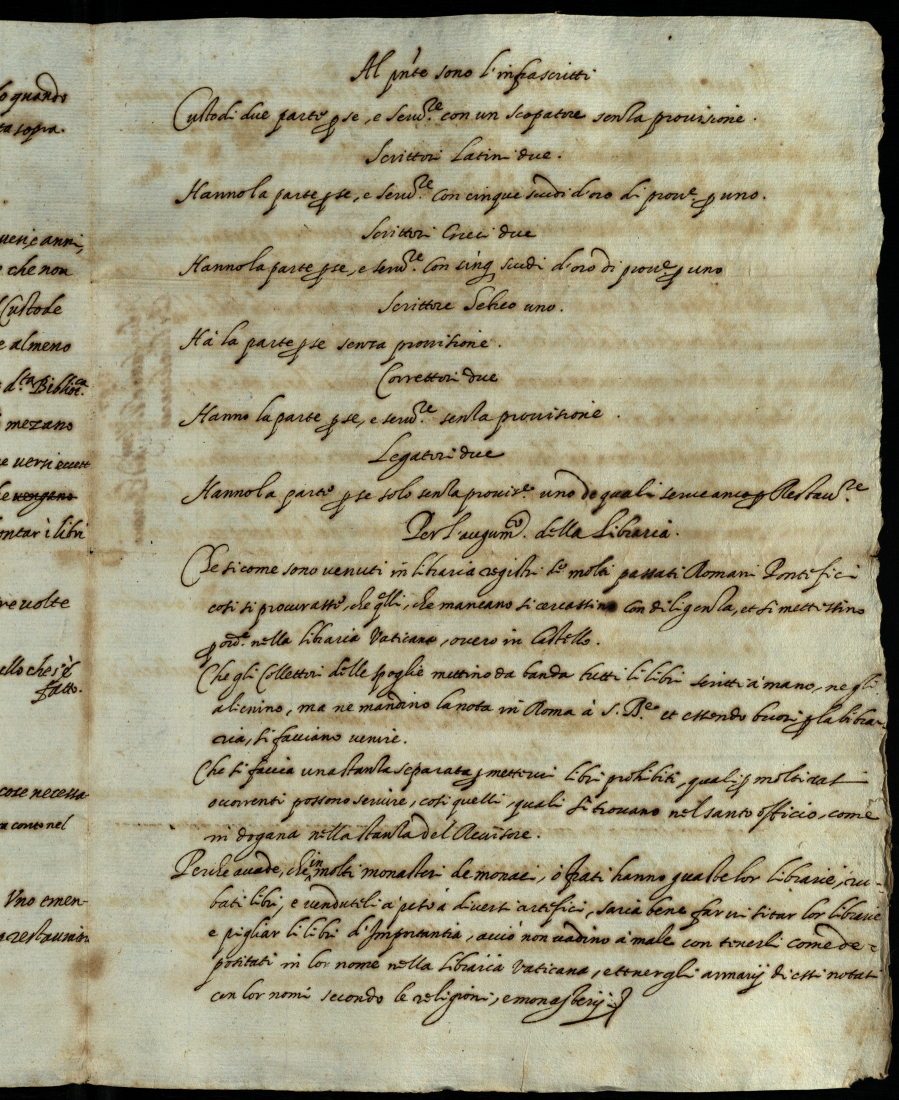 lo quando
ta sopra.
uerie anni,
e che non
Custode
e almeno
d.ta Biblio.ca
mezano
e versi
he uengano
ontar i libri
re volte
ello che s'è
fatto.
cose necessa
a conto nel
Vno emen-
Al pnte sono l'infrascritti
Custodi due parte p se, e seru.re con un scopatore senza prouisione.
Scrittori Latini due.
Hanno la parte p se, e seru.re con cinque scudi d'oro di prou.e p uno.
Scrittori Greci due
Hanno la parte p se, e seru.re con cinq scudi d'oro di prou.e p uno
Scrittore Hebreo uno.
Hà la parte p se senza prouisione.
Correttori due
Hanno la parte p se, e seru.re senza prouisione.
Legatori due
Hanno la parte p se solo senza prouis.e uno de quali serue anco p Restau.re
Per l'augum.to della Libraria.
Che sicome sono venuti in libraria registri de molti passati Romani Pontefici
cosi si procurasse, che qlli, che mancano si cercassino con diligenza, et si mettessino
p ord.e nella libraria Vaticana, ouero in Castello.
Che gli Collettori delle spoglie mettino da banda tutti li libri scritti à mano, ne gli
alienino, ma ne mandino la nota in Roma à S. B.ne et essendo buoni p la libra-
ria, si facciano uenire.
Che si faccia una stanza separata p metterui libri prohibiti, quali p molti casi
occorrenti possono seruire, cosi quelli, quali si trouano nel santo officio, come
in dogana nella stanza del Reuisore.
Perche accade, che in molti monasteri de monaci, ò frati hanno guaste lor librarie, ru-
bati libri, e uendutili a peso à diuersi artefici, saria bene far uisitar lor librarie
e pigliar li libri d'Importantia, acciò non uadino à male con tenerli come de-
positati in lor nome nella libraria Vaticana, e tenergli armarij di essi notati
con lor nomi secondo le religioni, e monasterij